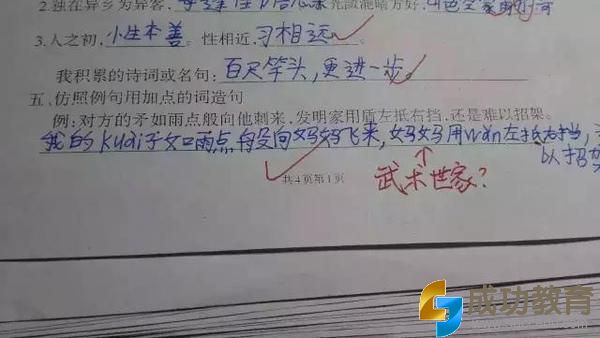 2.独在异乡为异客,每逢佳节倍思亲
3.人之初,小生本善。性相近,习相远。
我积累的诗词或名句:百尺竿头,更进一步。
五、仿照例句用加点的词造句
例:对方的矛如雨点般向他刺来,发明家用盾左抵右挡,还是难以招架。
我的kuai子如雨点般向妈妈飞来,妈妈用wan左抵右挡,
以招架
共4页第1页
武术世家?
成功教育